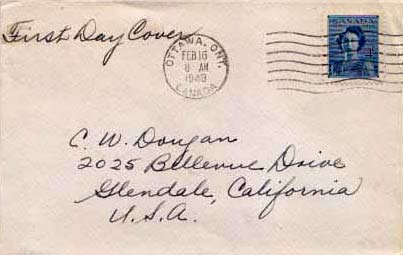 First Day Cover
OTTAWA, ONT.
FEB 16
8 AM
1948
CANADA
CANADA
C. W. Dougan
2025 Bellevue Drive
Glendale, California
U.S.A.